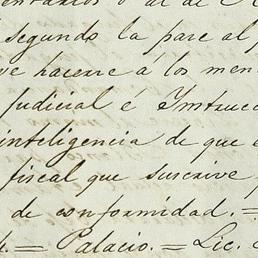 segundo la pare al p
ve hacerse á los men
judicial é Instrucc
inteligencia de que e
fiscal que suscrive
de conformidad. =
= Palacio. = Lic.